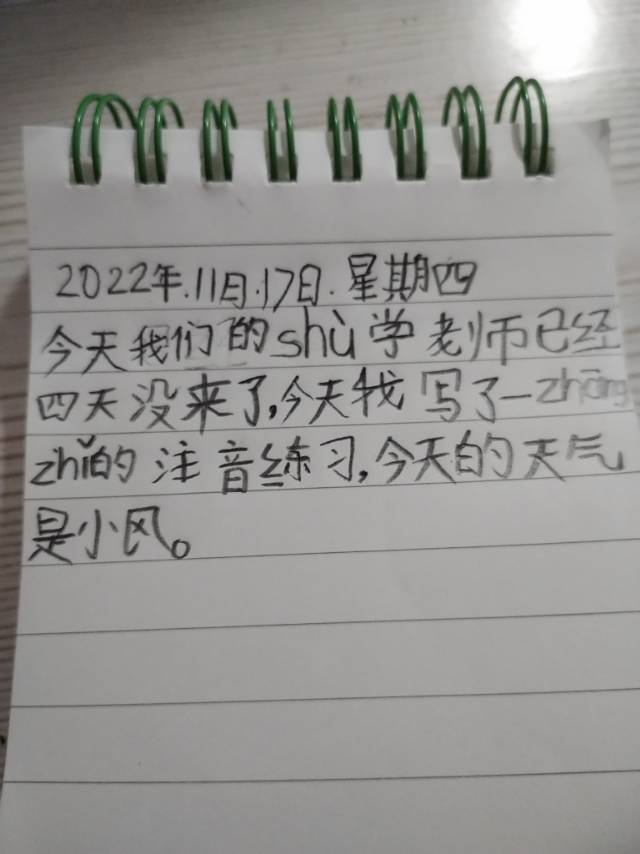 2022年.11月.17日.星期四
今天我们的shù学老师已经
四天没来了,今天我写了一zhāng
zhǐ的注音练习,今天的天气
是小风。